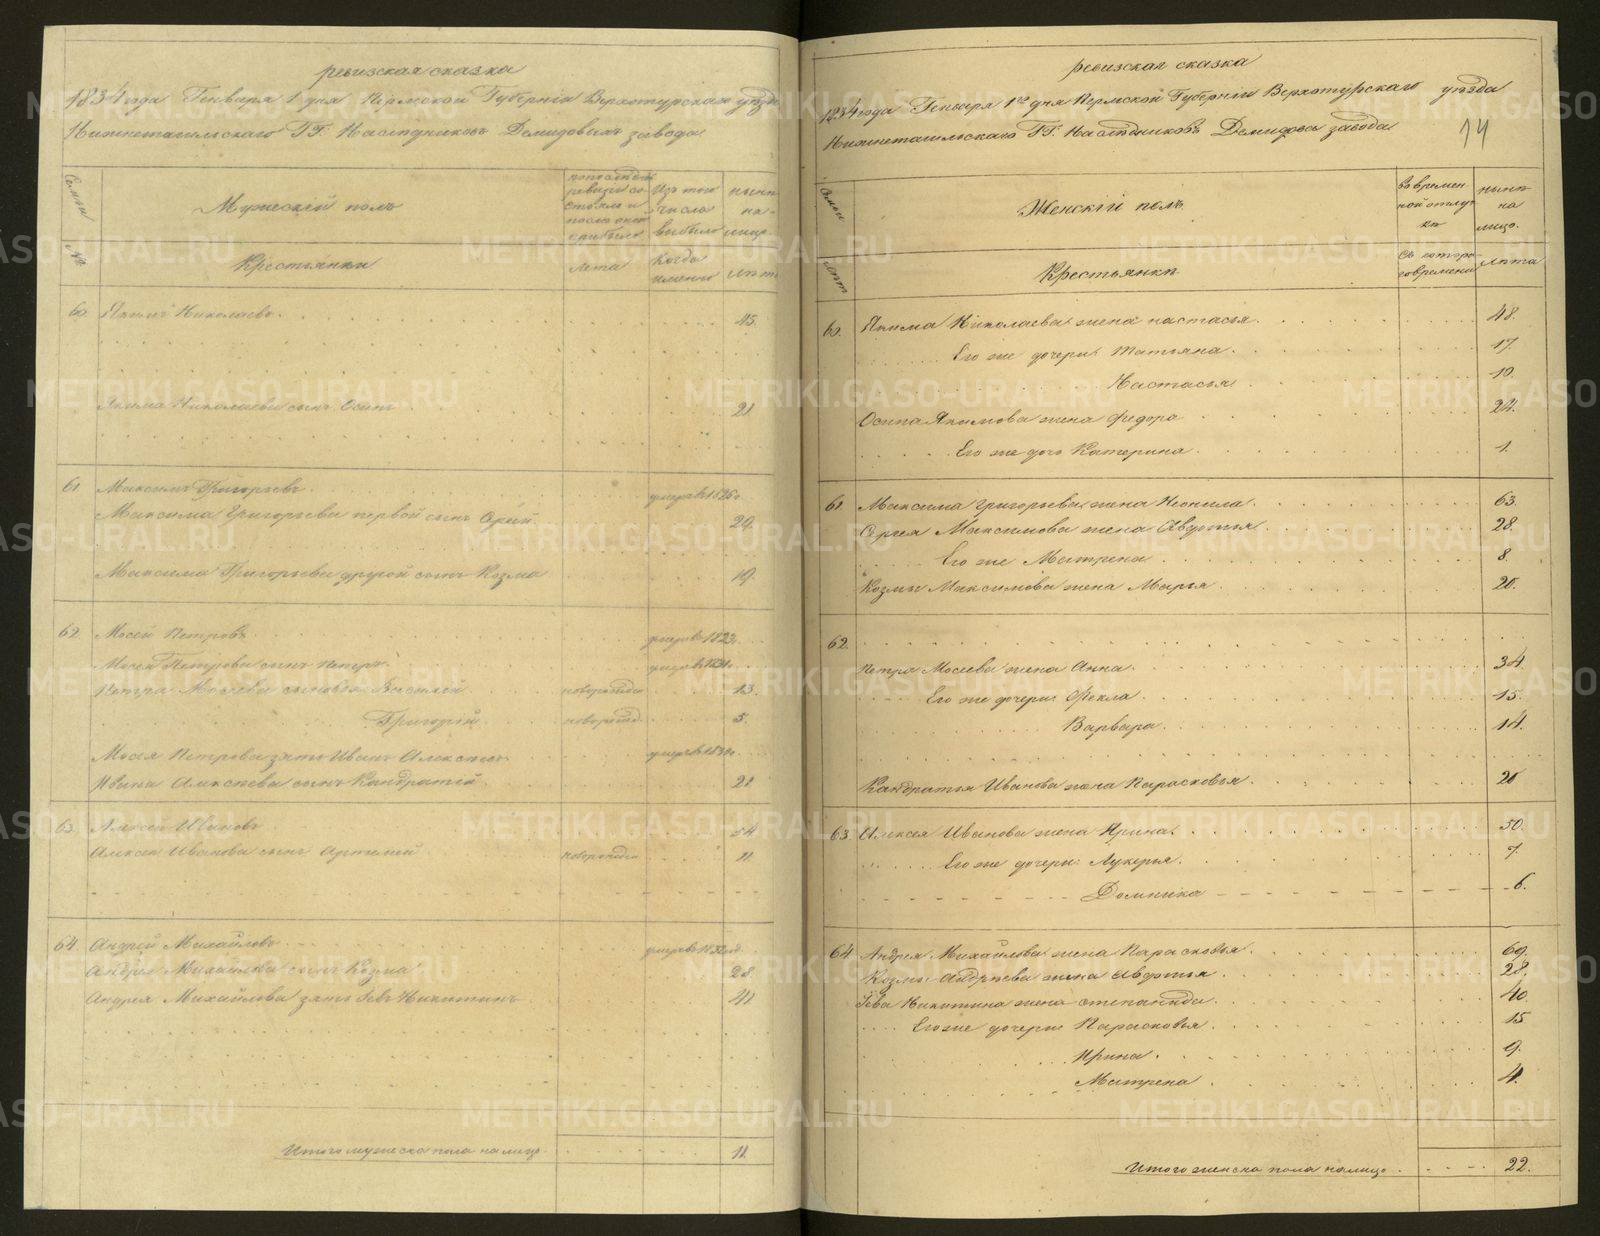 ревизская сказка
1834 года Генваря 1 дня Пермской Губернiи Верхотурскаго уѣзда
Нижнетагильскаго ГГ. Наслѣдниковъ Демидовыхъ завода
Семьи
№
Мужескiй полъ
по послѣдней ревизiи состояло и после оной прибыло
Изъ того числа выбыло
нынѣ на-лицо.
Крестьянки
лета
Когда именно
лѣта
60. Якимъ Николаевъ. 45.
Якима Николаева сынъ Осипъ 21
61. Максимъ Григорьевъ. умеръ в 1826 г
Максима Григорьева первой сынъ Сергей 29.
Максима Григорьева другой сынъ Козма 19.
62. Мосей Петровъ. умеръ в 1823.
Мосея Петрова сынъ Петръ.
Петра Мосеева сыновья Василей новорожден 13.
Григорiй новорожд 5.
Мосея Петрова зять Иванъ Алексѣевъ
Ивана Алексѣева сынъ Кандратей 21
63. Алексей Ивановъ. 54
Алексея Иванова сынъ Артемей новорожден 11
64. Андрей Михайловъ. умеръ в 1832 год
Андрея Михайлова сынъ Козма 28.
Андрея Михайлова зять Гевъ Никитинъ 41
Итого мужеска пола налицо. 11.
ревизская сказка
1834 года Генваря 1го дня Пермской Губернiи Верхотурскаго уѣзда
Нижнетагильскаго ГГ. Наслѣдниковъ Демидовыхъ завода
14
Семьи
Женскiй полъ
во временной отлучкѣ
нынѣ на лицо.
Крестьянкѣ
Съ которого времени
лѣта
60. Якима Николаева жена Настасья. 48.
Его же дочери: Татьяна. 17.
Настасья 10.
Осипа Якимова жена Федора 24.
Его же дочь Катерина. 1.
61. Максима Григорьева жена Неонила. 63.
Сергея Максимова жена Авдотья. 28.
Его же Матрена 8.
Козмы Максимова жена Марья. 20.
62.
Петра Мосеева жена Анна. 34.
Его же дочери: Фекла. 15.
Варвара. 14.
Кандратья Иванова жена Парасковья. 20
63. Алексея Иванова жена Ирина. 50.
Его же дочери: Лукерья. 7.
Домника 6.
64 Андрея Михайлова жена Парасковья. 69.
Козмы Андрѣева жена Авдотья. 28.
Гева Никитина жена Степанида. 40.
Его же дочери: Парасковья. 15
Ирина. 9.
Матрена 4.
Итого женска пола налицо. 22.
METRIKI.GASO-URAL.RU